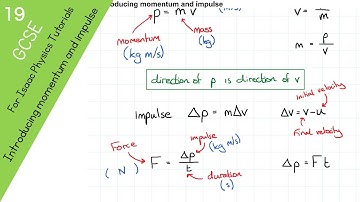 19
GCSE
For Isaac Physics Tutorials
Introducing momentum and impulse
roducing momentum and impulse
p = m v
v = — m
momentum
(kg m/s)
mass
(kg)
m = p/v
direction of p is direction of v
initial velocity
impulse Δp = mΔv
Δv = v-u
Final velocity
Force
(N)
F = Δp/t
impulse
(kg m/s)
duration
(s)
Δp = Ft